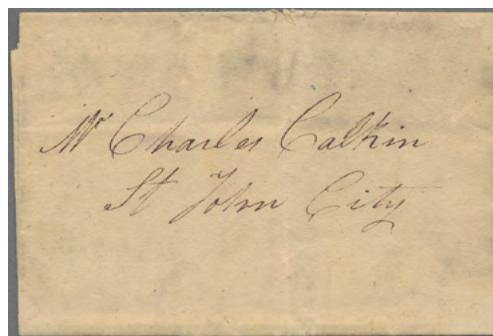 Mr Charles Calkin
St John City